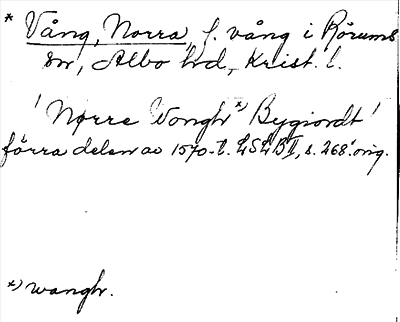 * Vång, Norra, f. vång i Rörums
sn, Albo hd, Krist. l.
'Nørre Vongh*) Bygiordt'
förra delen av 1570-t. LSLBII, s. 268. orig.
*) wangh.